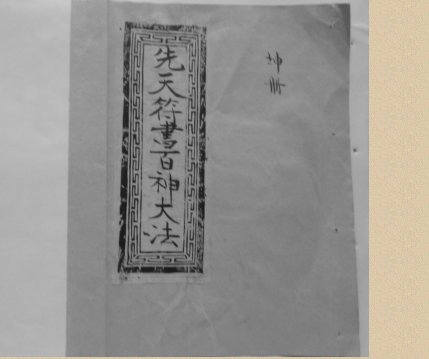 先天符書百神大法
坤册